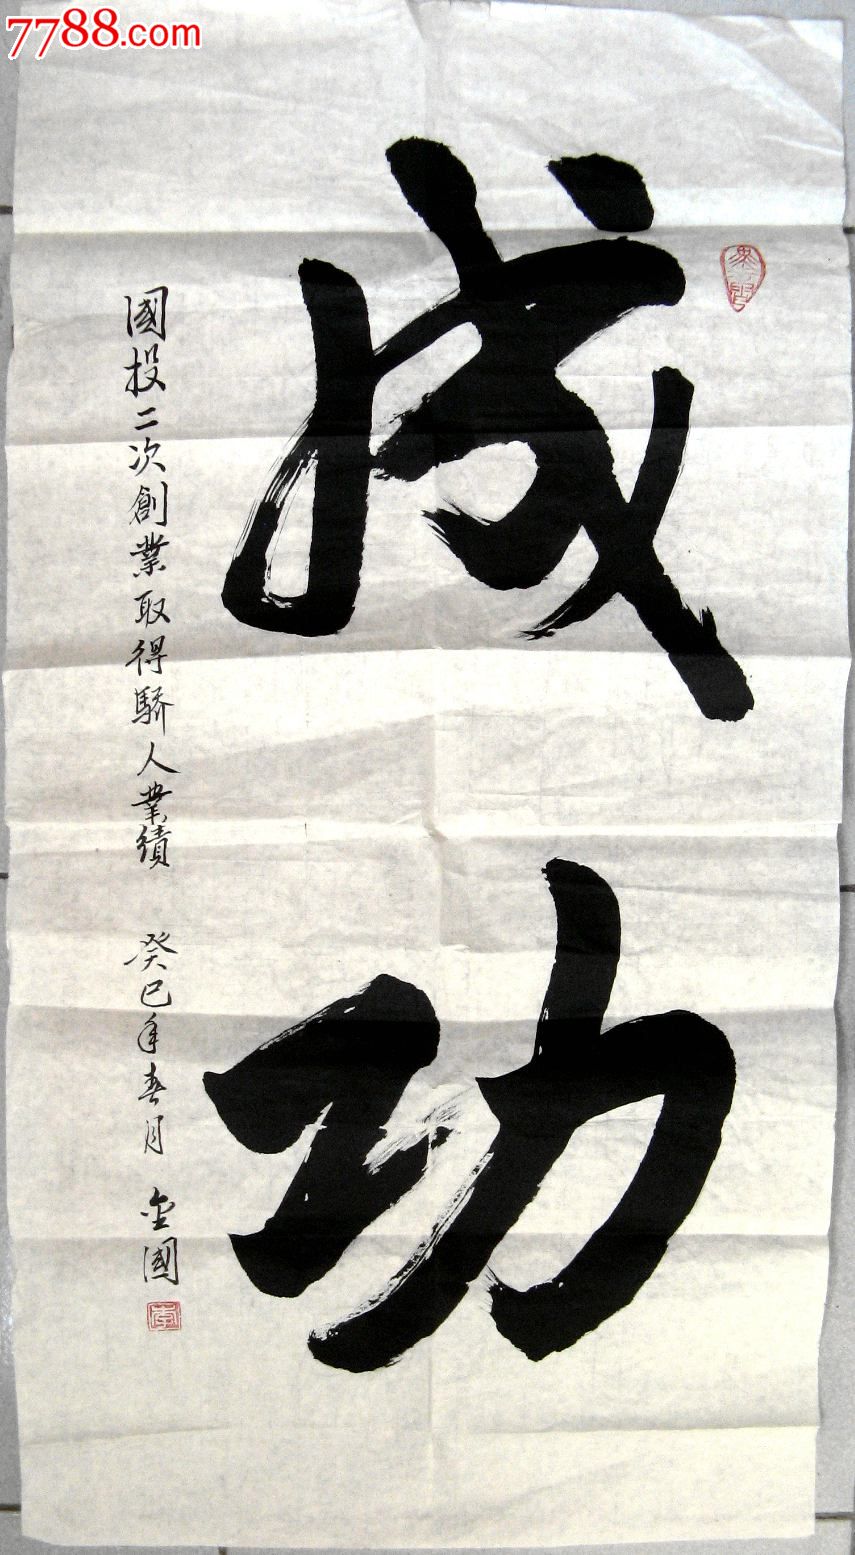 7788.com
成功
國投二次創業取得驕人業績 癸巳年春月 金國